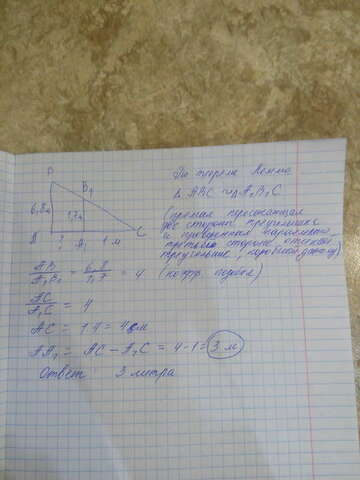 B
B₁
6,8 м
1,7 м
A ? A₁ 1 м C
По теорема
Δ ABC ∾ A₁B₁C
(прямая пересекающая
две стороны треугольника
и проведенная параллельно
третьей стороне отсекает
треугольник, подобный данному)
AB/A₁B₁ = 6,8/1,7 = 4 (коэфф. подобия)
AC/A₁C = 4
AC = 1·4 = 4 м
AA₁ = AC − A₁C = 4 − 1 = 3 м
Ответ 3 метра